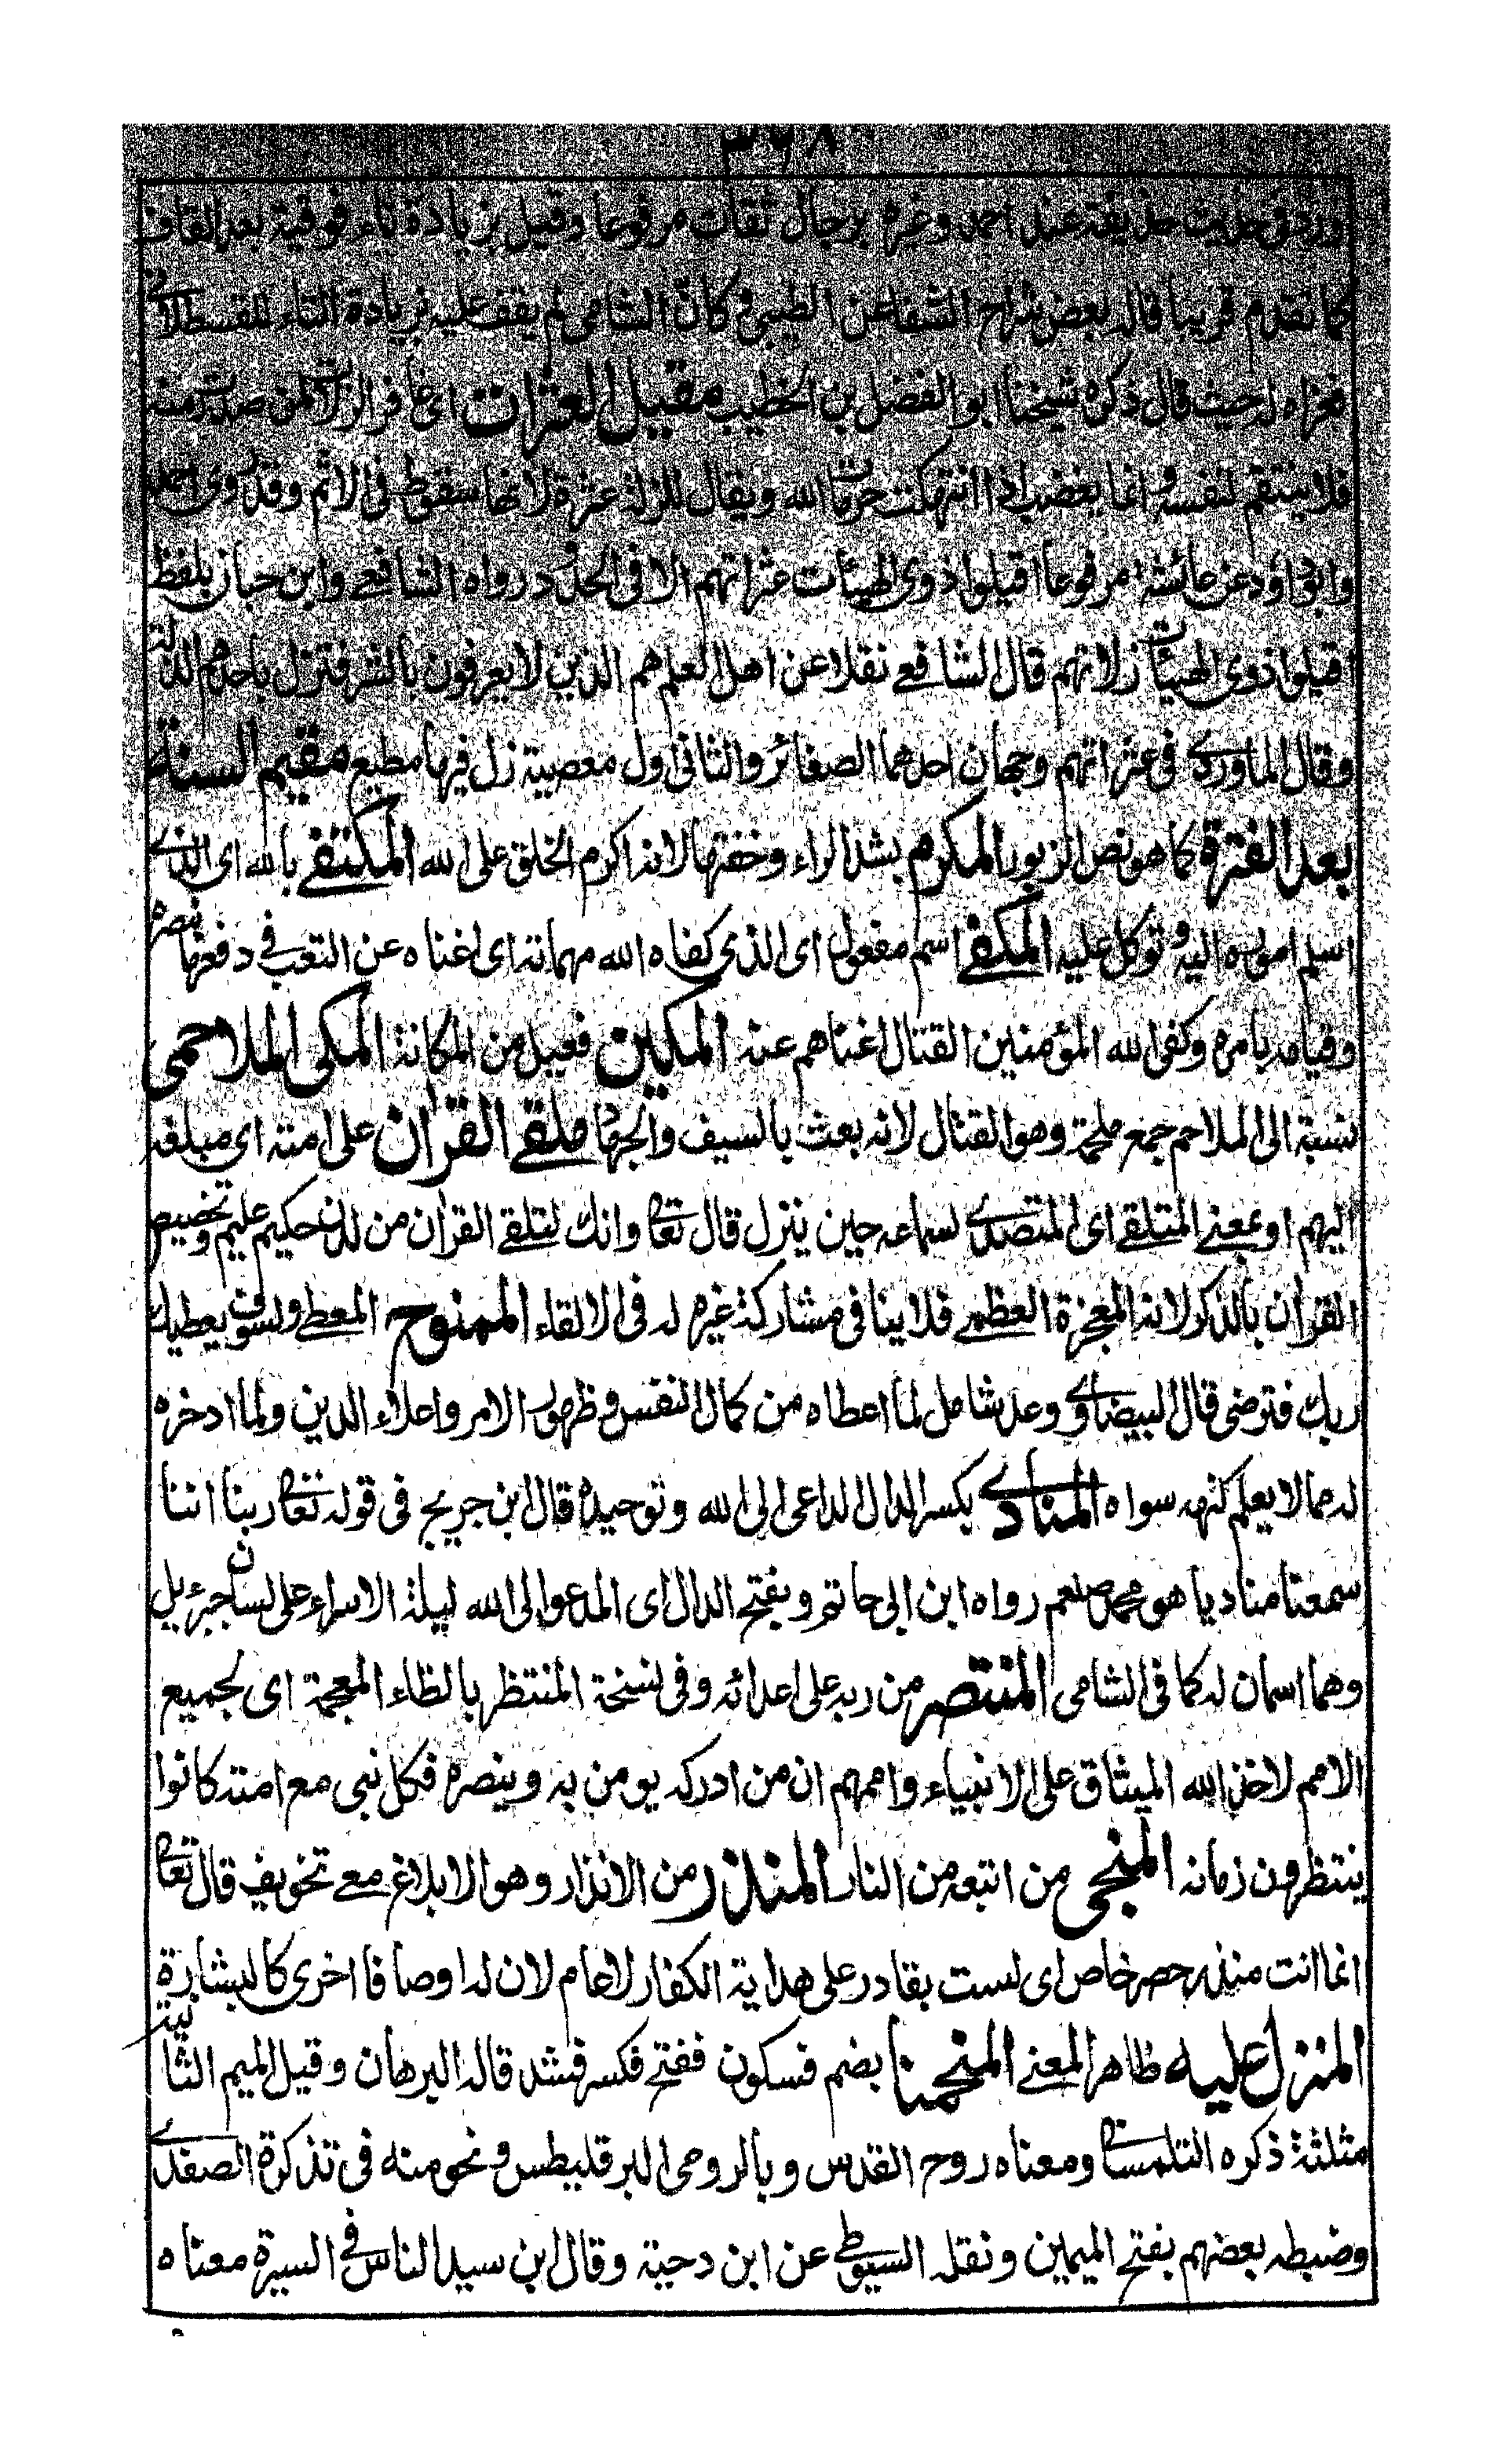 ورد في حديث حذيفة عند احمد وغيره برجال ثقات مرفوعا وقيل بزيادة تاء فوقية بعد القاف
كما تقدم قريبا قاله بعض شراح الشفا عن الطيبي وكان الشامي لم يقف عليه بزيادة التاء للقسطلاني
فعزاه له حيث قال ذكره شيخنا ابو الفضل بن الخطيب مقيل العثرات اى غافر الزلات لمن صدرت منه
فلا ينتقم لنفسه وانما يغضب اذا انتهكت حرمات الله ويقال للزلة عثرة لانها سقوط في الاثم وقد روى احمد
وابو داؤد عن عائشة مرفوعا اقيلوا ذوى الهيئات عثراتهم الا في الحدود رواه الشافعي وابن حبان بلفظ
اقيلوا ذوى الهيئات زلاتهم قال الشافعي نقلا عن اهل العلم هم الذين لا يعرفون بالشر فتزل باحدهم الزلة
وقال الماوردي في عثراتهم وجهان احدهما الصغائر والثاني اول معصية زل فيها مطيع مقيم السنة
بعد الفترة كما هو نص الزبور المكرم بشد الراء وخفتها لانه اكرم الخلق على الله المكتفي بالله اى الذى
اسلم اموره اليه وتوكل عليه المكفي اسم مفعول اى الذى كفاه الله مهماته اى اغناه عن التعب في دفعها بنصره
وقيامه بامره وكفى الله المؤمنين القتال اغناهم عنه المكين فعيل من المكانة المكى الملاحمى
نسبة الى الملاحم جمع ملحمة وهو القتال لانه بعث بالسيف والجهاد ملقي القرآن على امته اى مبلغه
اليهم او بمعنى المتلقي اى المتصدى لسماعه حين ينزل قال تعالى وانك لتلقى القرآن من لدن حكيم عليم وتخصيص
القرآن بالذكر لانه المعجزة العظمى فلا ينافى مشاركة غيره له فى الالقاء الممنوح المعطى ولسوف يعطيك
ربك فترضى قال البيضاوى وعد شامل لما اعطاه من كمال النفس وظهور الامر واعلاء الدين ولما ادخره
له مما لا يعلم كنهه سواه المنادى بكسر الدال الداعى الى الله وتوحيده قال ابن جريج فى قوله تعالى ربنا اننا
سمعنا مناديا هو محمد صلعم رواه ابن ابى حاتم وبفتح الدال اى المدعو الى الله ليلة الاسراء على لسان جبرئيل
وهما اسمان له كما فى الشامى المنتصر من ربه على اعدائه وفى نسخة المنتظر بالظاء المعجمة اى لجميع
الامم لاخذ الله الميثاق على الانبياء واممهم ان من ادركه يومن به وينصره فكل نبى مع امته كانوا
ينتظرون زمانه المنجى من اتبعه من النار المنذر من الانذار وهو الابلاغ مع تخويف قال تعالى
انما انت منذر حصر خاص اى لست بقادر على هداية الكفار لا عام لان له اوصافا اخرى كالبشارة
المنزل عليه ظاهر المعنى المنحمنا بضم فسكون ففتح فكسر فشد قاله البرهان وقيل الميم الثانية
مثلثة ذكره التلمسانى ومعناه روح القدس وبالرومى البرقليطس ونحو منه فى تذكرة الصفدى
وضبطه بعضهم بفتح الميمين ونقله السيوطى عن ابن دحية وقال ابن سيد الناس فى السيرة معناه